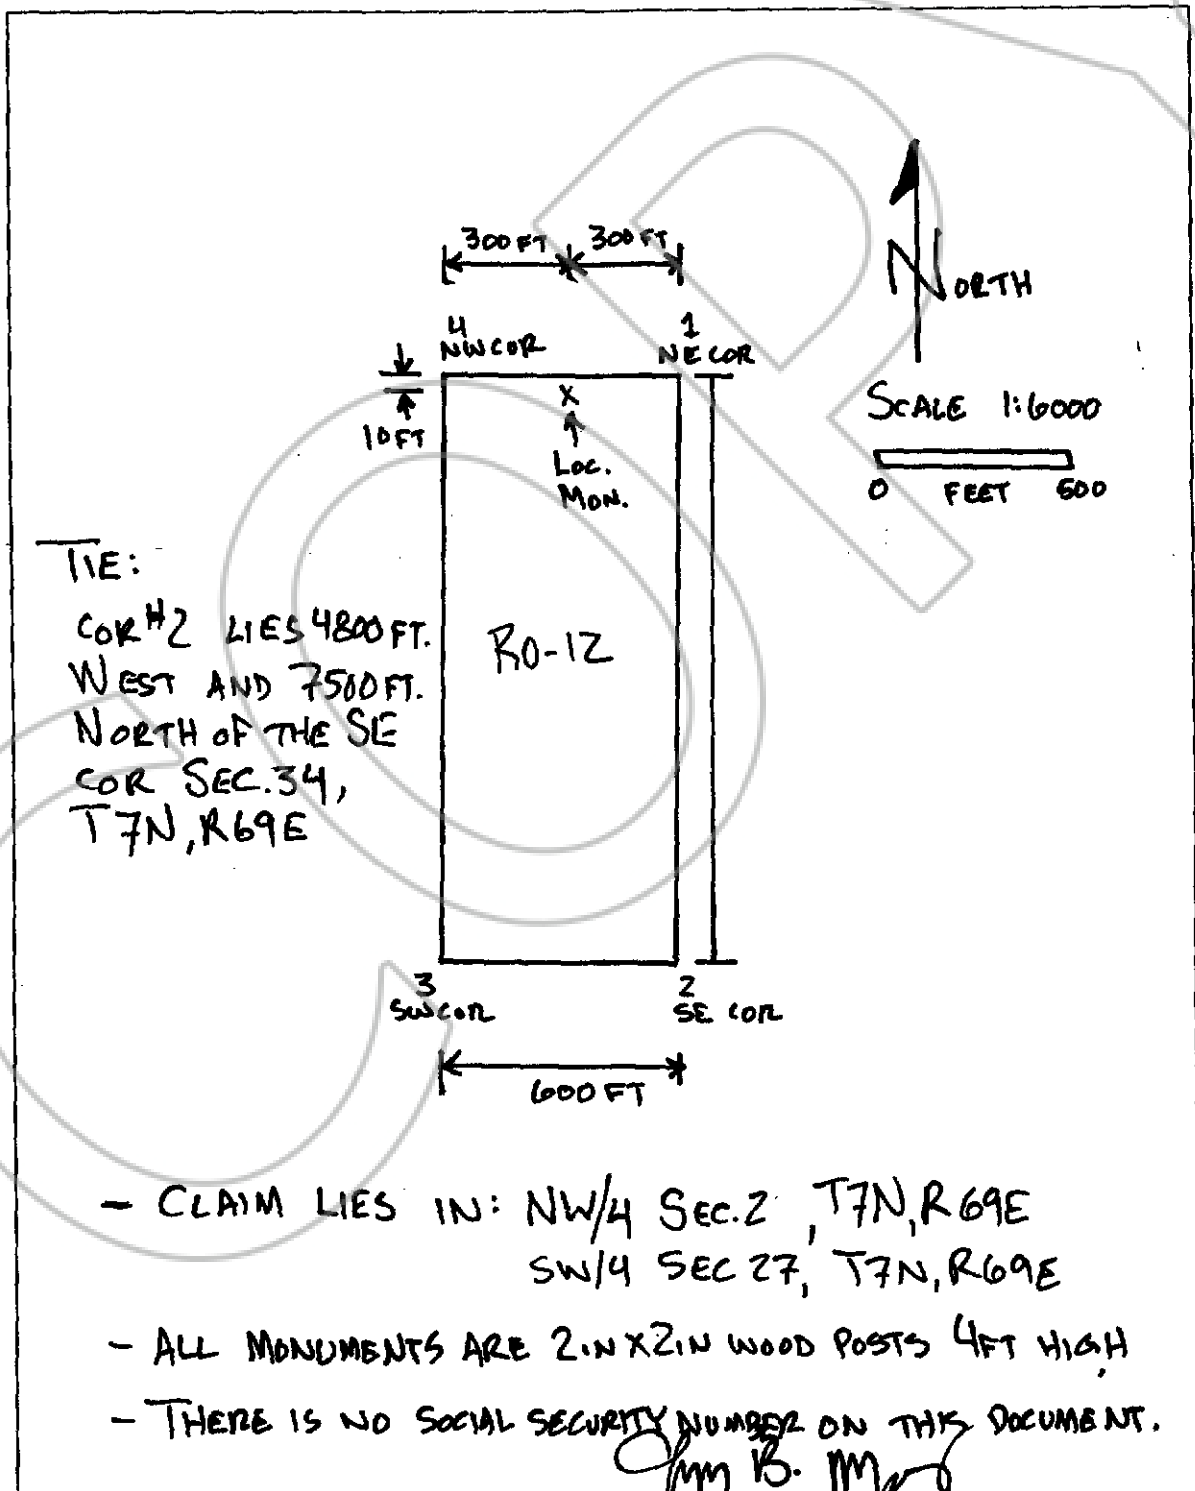 300 FT 300 FT
4
NW COR
1
NE COR
NORTH
10 FT
X
LOC.
MON.
SCALE 1:6000
0 FEET 500
TIE:
COR #2 LIES 4800 FT.
WEST AND 7500 FT.
NORTH OF THE SE
COR SEC. 34,
T7N, R69E
RO-12
3
SW COR
2
SE COR
600 FT
- CLAIM LIES IN: NW/4 SEC. 2 , T7N, R69E
SW/4 SEC 27, T7N, R69E
- ALL MONUMENTS ARE 2IN X 2IN WOOD POSTS 4FT HIGH
- THERE IS NO SOCIAL SECURITY NUMBER ON THIS DOCUMENT.
COPY